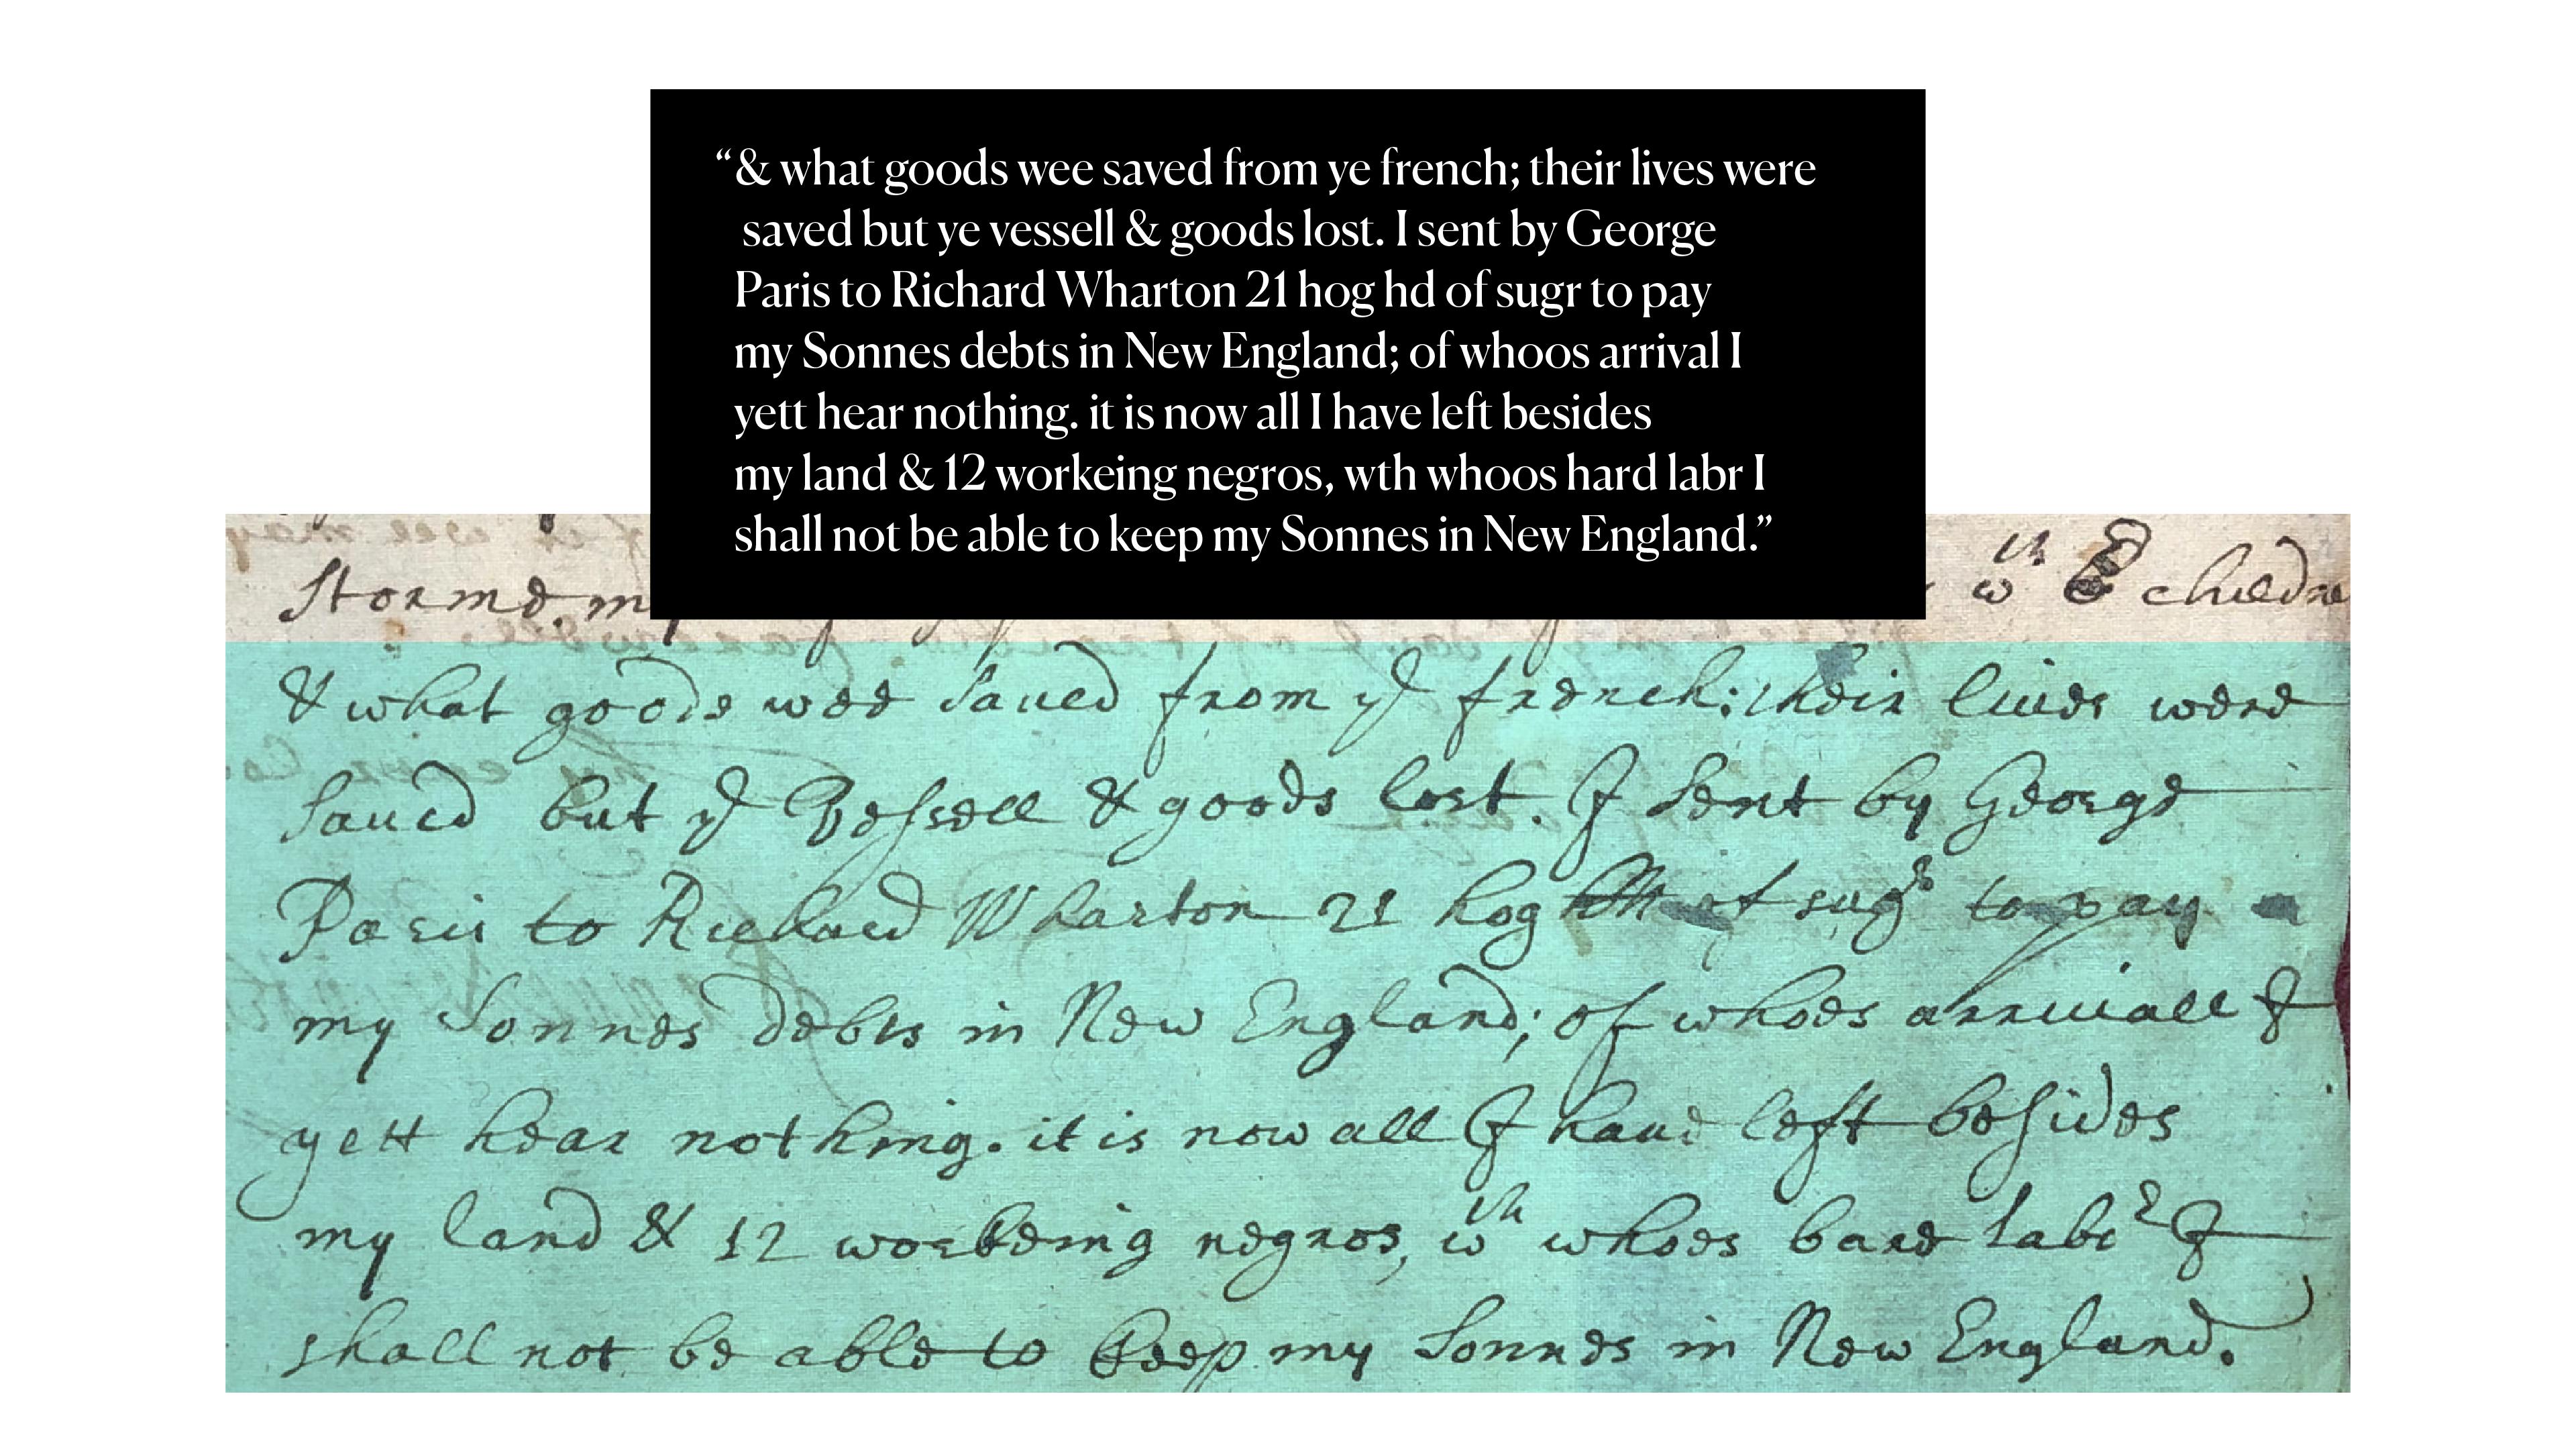 “& what goods wee saved from ye french; their lives were
saved but ye vessell & goods lost. I sent by George
Paris to Richard Wharton 21 hog hd of sugr to pay
my Sonnes debts in New England; of whoos arrival I
yett hear nothing. it is now all I have left besides
my land & 12 workeing negros, wth whoos hard labr I
shall not be able to keep my Sonnes in New England.”
wth
& what goods wee saued from ye french: their liues were
saued but ye Vessell & goods lost. I sent by George
Paris to Richard Wharton 21 hog of sugr to pay
my Sonnes debts in New England; of whoes arriuall I
yett hear nothing. it is now all I haue left besides
my land & 12 workeing negros, wth whoes bare labr I
shall not be able to keep my Sonnes in New England.